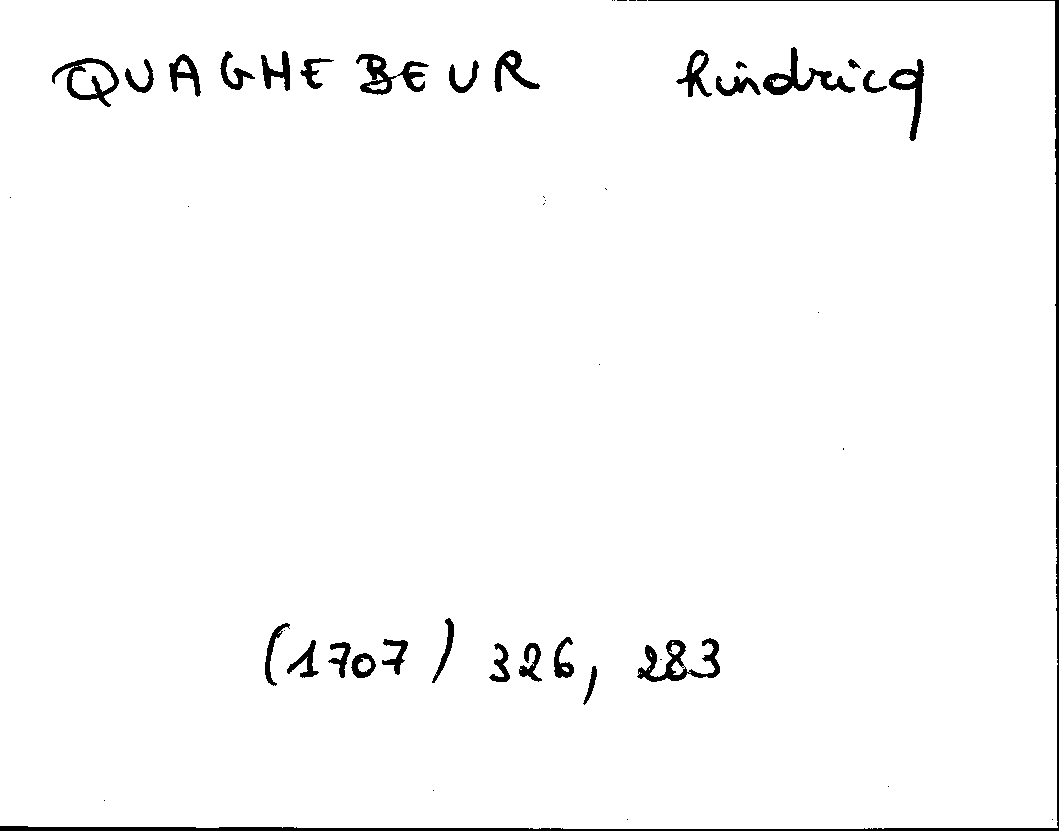 QUAGHEBEUR hindricq
(1707) 326, 283